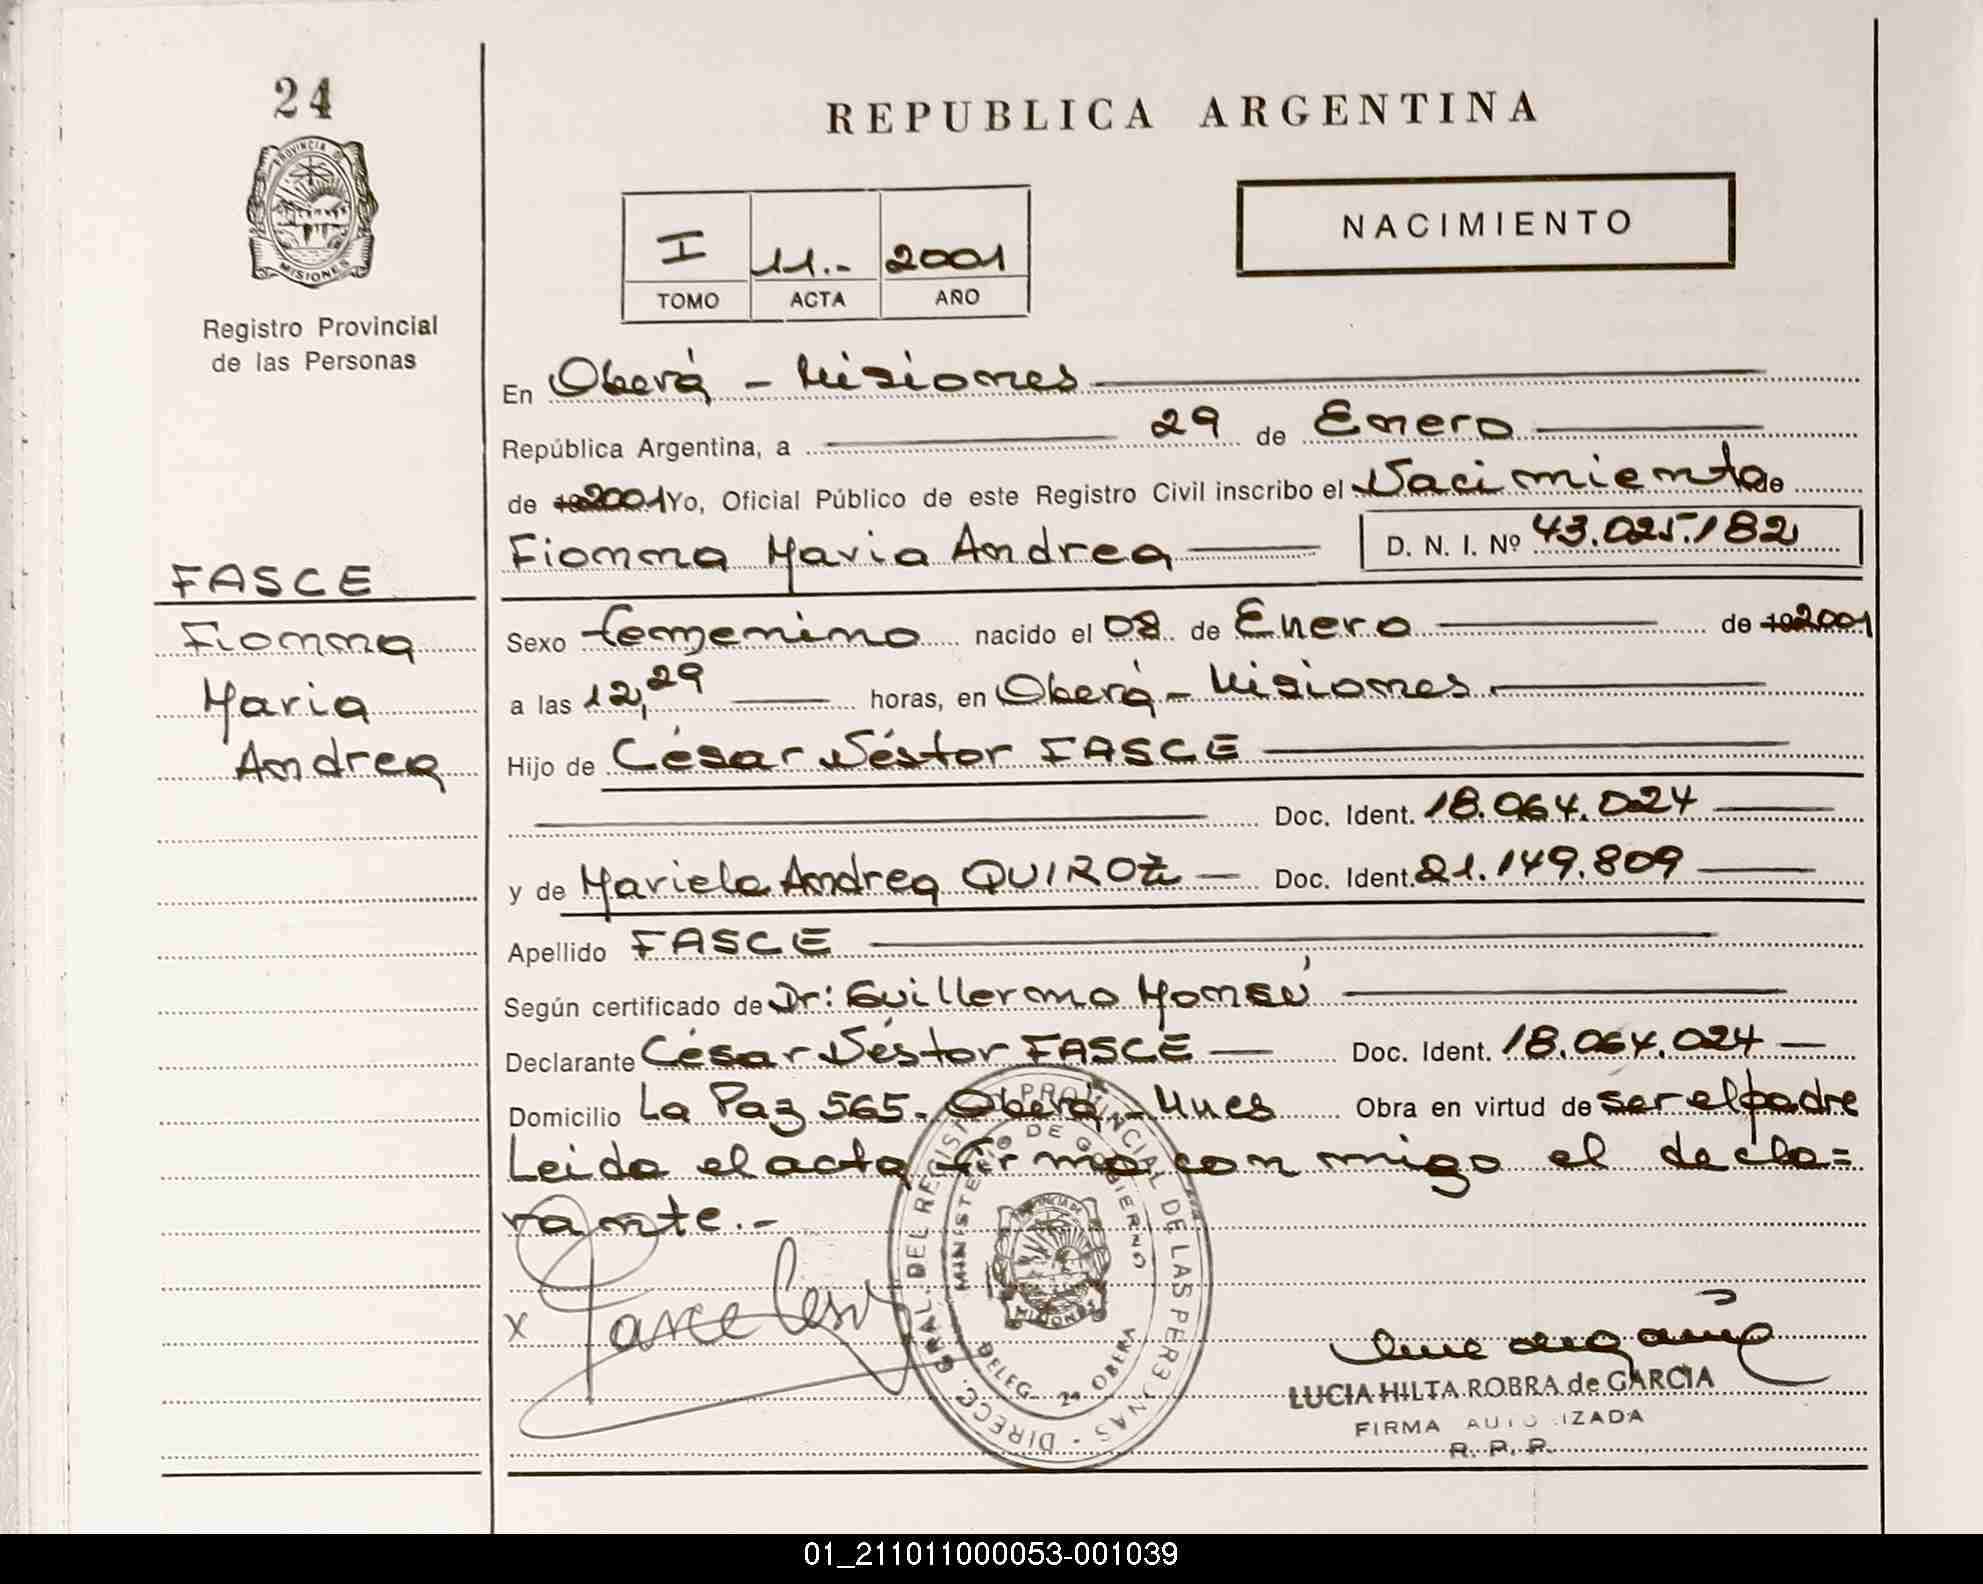 24
PROVINCIA DE
MISIONES
Registro Provincial
de las Personas
FASCE
Fiomma
Maria
Andrea
REPUBLICA ARGENTINA
NACIMIENTO
I 11.- 2001
TOMO ACTA AÑO
En Oberá - Misiones
República Argentina, a 29 de Enero
de 19 2001 Yo, Oficial Público de este Registro Civil inscribo el Nacimiento de
Fiomma Maria Andrea D. N. I. Nº 43.025.182
Sexo femenino nacido el 08 de Enero de 19 2001
a las 12,29 horas, en Oberá - Misiones
Hijo de César Néstor FASCE
Doc. Ident. 18.064.024
y de Mariela Andrea QUIROZ Doc. Ident. 21.149.809
Apellido FASCE
Según certificado de Dr: Guillermo Monsú
Declarante César Néstor FASCE Doc. Ident. 18.064.024
Domicilio La Paz 565 - Oberá - Mnes Obra en virtud de ser el padre
Leida el acta firma con migo el decla=
rante.-
x Fasce Cesar
DIRECC. GRAL. DEL REGISTRO PROVINCIAL DE LAS PERSONAS
MINISTERIO DE GOBIERNO
MISIONES
DELEG. 2ª OBERA
LUCIA HILTA ROBRA de GARCIA
FIRMA AUTORIZADA
R. P. P.
01_211011000053-001039